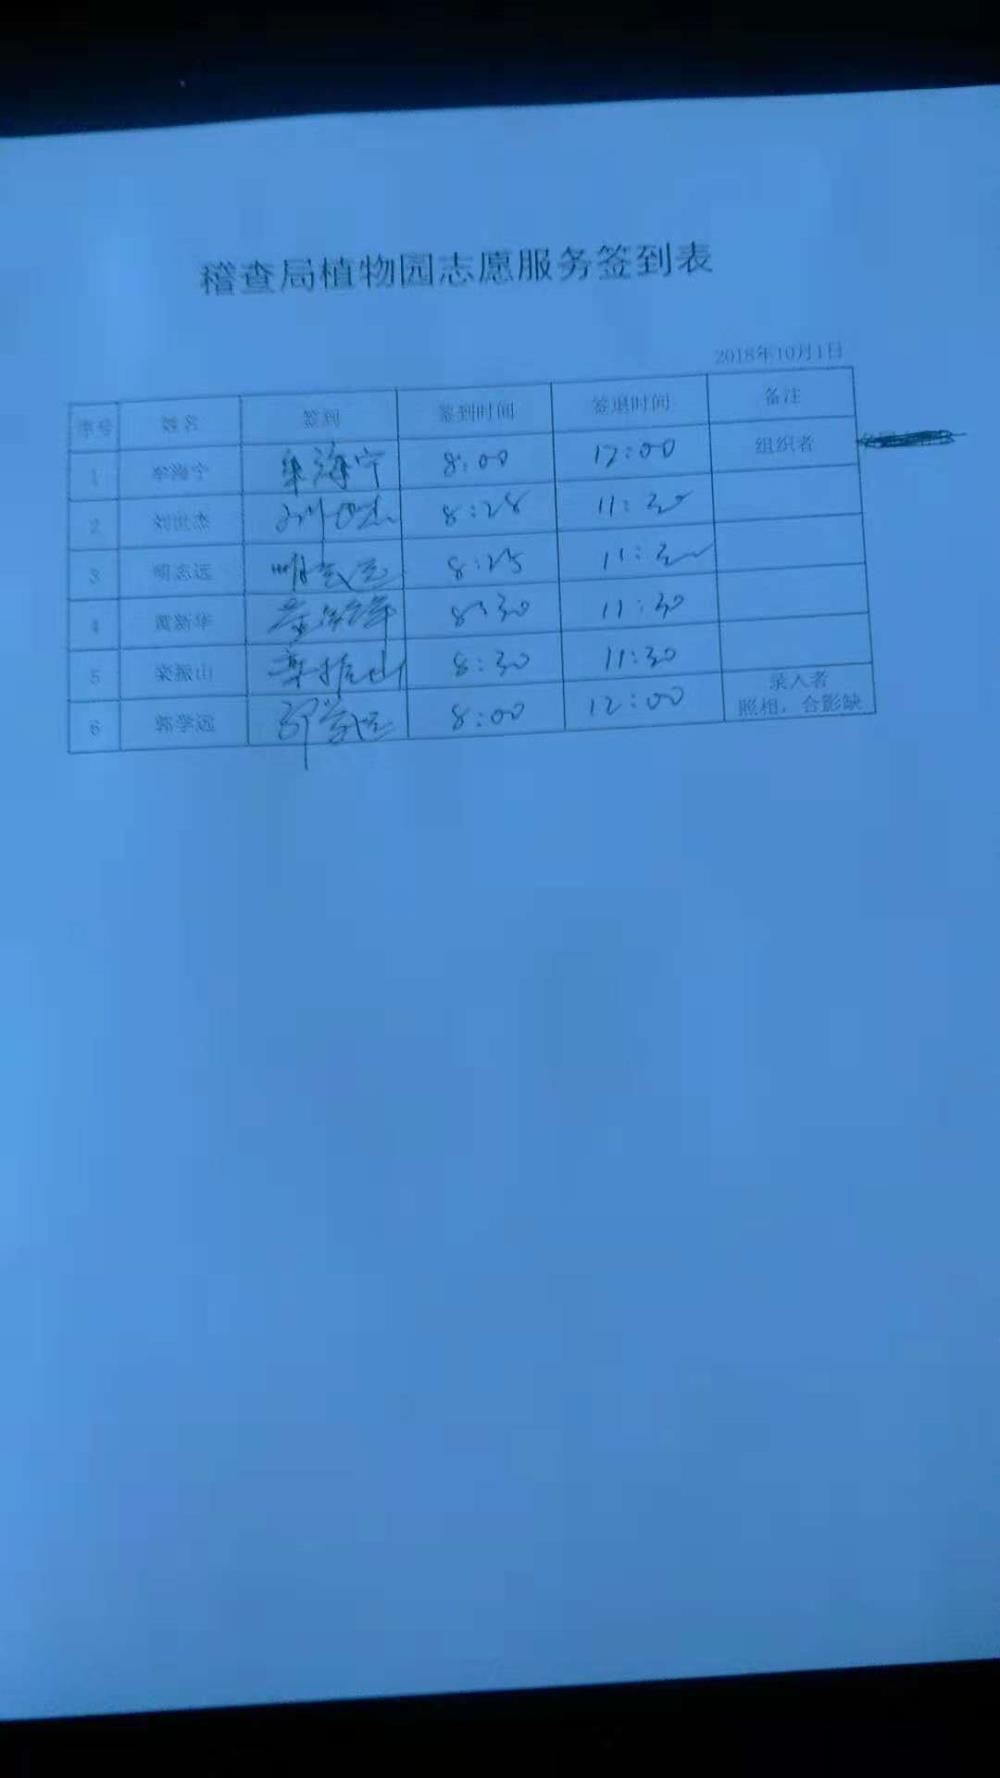 稽查局植物园志愿服务签到表
2018年10月1日
序号 姓名 签到 签到时间 签退时间 备注
1 牟海宁 牟海宁 8:00 12:00 组织者
2 刘世杰 刘世杰 8:28 11:30
3 明志远 明志远 8:25 11:30
4 黄新华 黄新华 8:30 11:30
5 栾振山 栾振山 8:30 11:30
6 郭学远 郭学远 8:00 12:00 录入者
照相，合影缺